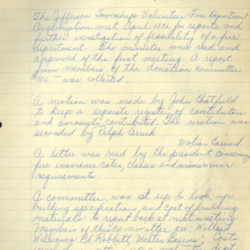 The Jefferson Township Volunteer Fire Department
Organization met April 18th for reports and
further investigation of feasibility of a fire
department. The minutes were read and
approved of the first meeting. A report
from members of the donation committee
was called.
A motion was made by John Hatfield
to keep a separate registry of contributors
and amounts contributed. The motion was
seconded by Ralph
Motion Carried
A letter was read by the president concerning
fire insurance rates, classes and minimum
requirements.
A committee was set up to look into
building specifications, and cost of building
materials to report back at next meeting.
Members of this committee are: Wilbert
Williams, Ed Bobbitt, Walter